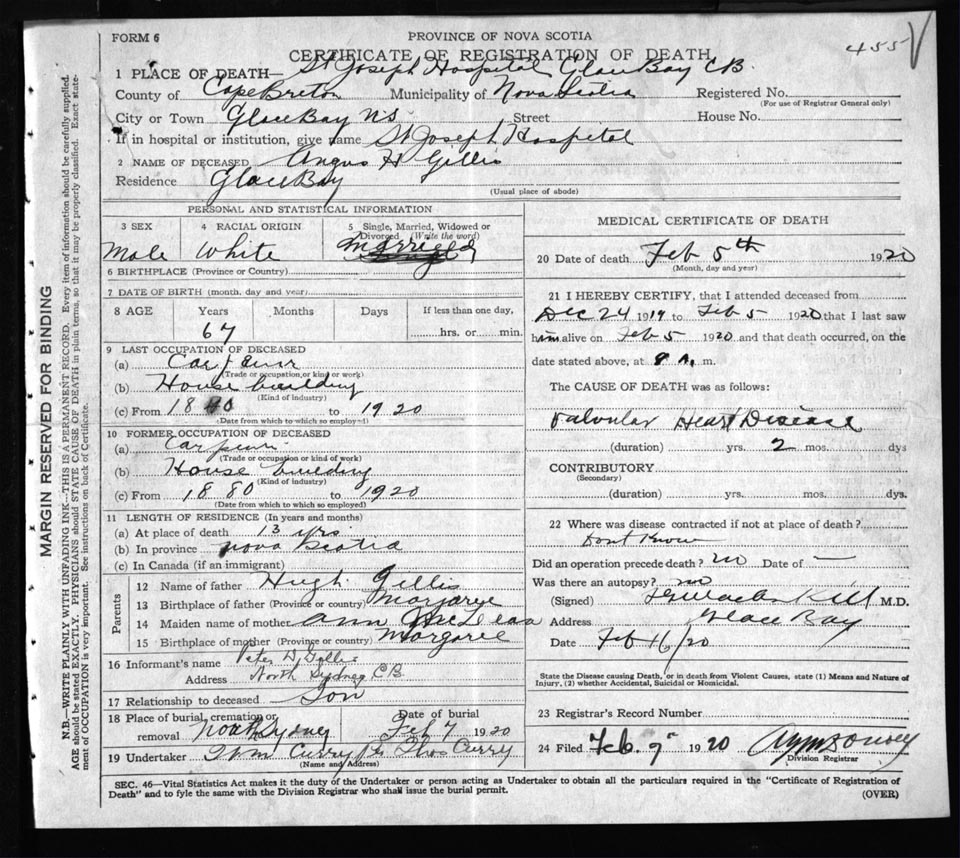 FORM 6
PROVINCE OF NOVA SCOTIA
455
CERTIFICATE OF REGISTRATION OF DEARTH
1 PLACE OF DEATH— St Joseph Hospital Glace Bay CB
County of Cape Breton Municipality of Nova Scotia Registered No.
(For use of Registrar General only)
City or Town Glace Bay NS Street House No.
If in hospital or institution, give name St Joseph Hospital
2 NAME OF DECEASED Angus H Gillis
Residence Glace Bay
(Usual place of abode)
PERSONAL AND STATISTICAL INFORMATION
3 SEX Male
4 RACIAL ORIGIN White
5 Single, Married, Widowed or Divorced (Write the word) Married
6 BIRTHPLACE (Province or Country)
7 DATE OF BIRTH (month, day and year)
8 AGE Years Months Days If less than one day,
67 hrs. or min.
9 LAST OCCUPATION OF DECEASED
(a)
(Trade or occupation, or kind or work)
(b) House building
(Kind of industry)
(c) From 1880 to 1920
(Date from which to which so employed)
10 FORMER OCCUPATION OF DECEASED
(a)
(Trade or occupation or kind of work)
(b) House building
(Kind of industry)
(c) From 1880 to 1920
(Date from which to which so employed)
11 LENGTH OF RESIDENCE (In years and months)
(a) At place of death 13 yrs.
(b) In province Nova Scotia
(c) In Canada (if an immigrant)
Parents
12 Name of father Hugh Gillis
13 Birthplace of father (Province or country) Margaree
14 Maiden name of mother Ann McLean
15 Birthplace of mother (Province or country) Margaree
16 Informant's name Peter D Gillis
Address North Sydney CB
17 Relationship to deceased Son
18 Place of burial, cremation or removal North Sydney Date of burial Feb 7 1920
19 Undertaker Wm Curry Thos Curry
(Name and Address)
MEDICAL CERTIFICATE OF DEATH
20 Date of death Feb 5th 1920
(Month, day and year)
21 I HEREBY CERTIFY, that I attended deceased from
Dec 24 1919 to Feb 5 1920 that I last saw
him alive on Feb 5 1920 and that death occurred, on the
date stated above, at 8 A. m.
The CAUSE OF DEATH was as follows:
Valvular Heart Disease
(duration) yrs. 2 mos. dys
CONTRIBUTORY
(Secondary)
(duration) yrs. mos. dys.
22 Where was disease contracted if not at place of death?
Dont Know
Did an operation precede death? no Date of —
Was there an autopsy? no
(Signed) M.D.
Address Glace Bay
Date Feb 16/20
State the Disease causing Death, or in death from Violent Causes, state (1) Means and Nature of
Injury, (2) whether Accidental, Suicidal or Homicidal.
23 Registrar's Record Number
24 Filed Feb. 9 1920
Division Registrar
SEC. 46—Vital Statistics Act makes it the duty of the Undertaker or person acting as Undertaker to obtain all the particulars required in the "Certificate of Registration of
Death" and to fyle the same with the Division Registrar who shall issue the burial permit. (OVER)
MARGIN RESERVED FOR BINDING
N.B.—WRITE PLAINLY WITH UNFADING INK—THIS IS A PERMANENT RECORD. Every item of information should be carefully supplied.
AGE should be stated EXACTLY. PHYSICIANS should STATE CAUSE OF DEATH in plain terms, so that it may be properly classified. Exact state-
ment of OCCUPATION is very important. See instructions on back of Certificate.